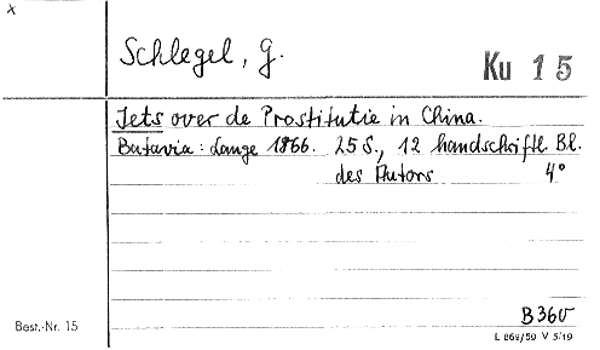 x
Schlegel, G.
Ku 15
Jets over de Prostitutie in China.
Batavia: Lange 1866. 25 S., 12 handschriftl. Bl.
des Autors 4°
B360
Best.-Nr. 15
L 868/59 V 5/19